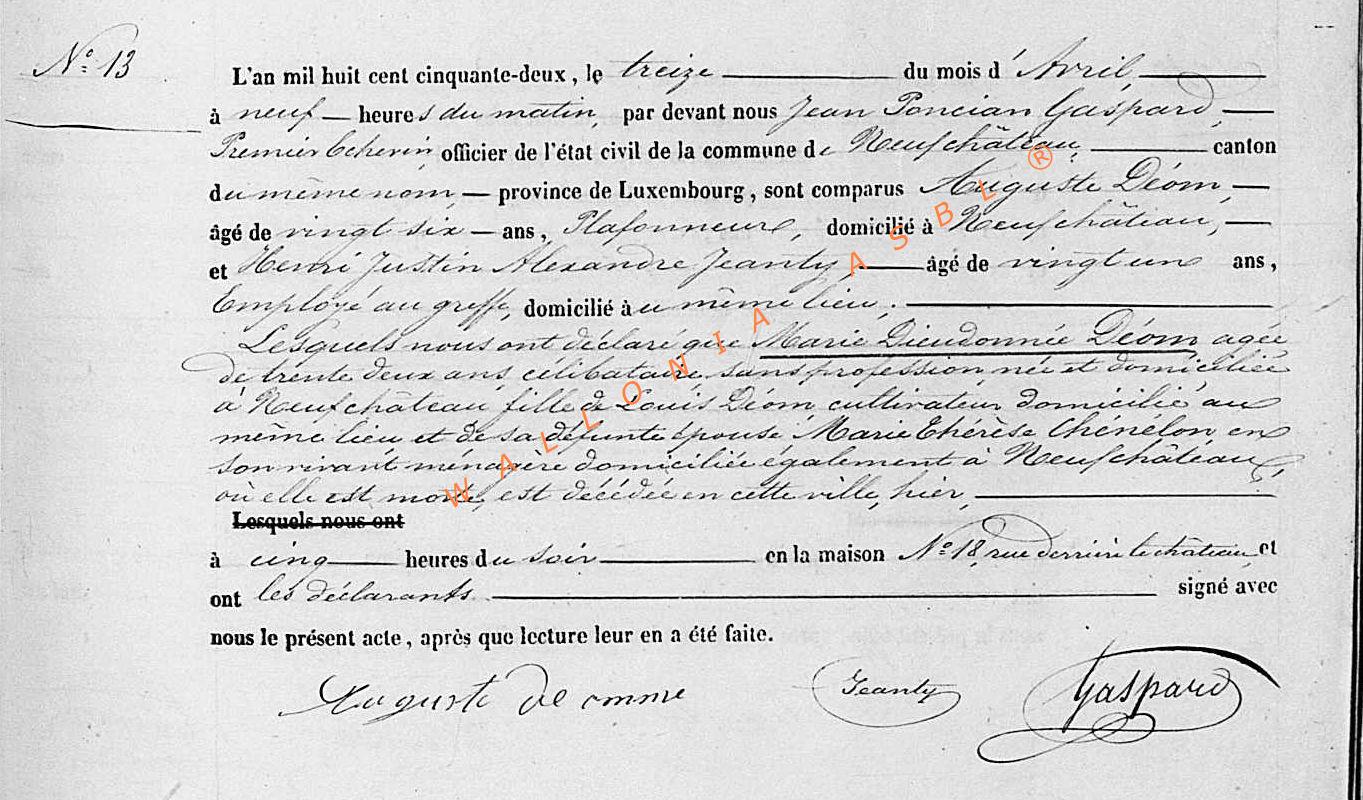 N.° 13
L'an mil huit cent cinquante-deux, le treize du mois d'Avril
à neuf heures du matin, par devant nous Jean Poncian Gaspard,
Premier Echevin officier de l'état civil de la commune de Neufchâteau, canton
du même nom, province de Luxembourg, sont comparus Auguste Déom,
âgé de vingt six ans, Plafonneur, domicilié à Neufchâteau,
et Henri Justin Alexandre Jeanty, âgé de vingt un ans,
Employé au greffe, domicilié au même lieu.
Lesquels nous ont déclaré que Marie Dieudonnée Déom agée
de trente deux ans, célibataire, sans profession, née et domiciliée
à Neufchâteau, fille de Louis Déom, cultivateur, domicilié au
même lieu et de sa défunte épouse Marie Thérèse Chénelon en
son vivant ménagère domiciliée également à Neufchâteau,
où elle est morte, est décédée en cette ville, hier,
Lesquels nous ont
à cinq heures du soir en la maison N.° 18, rue derrière le château, et
ont les déclarants signé avec
nous le présent acte, après que lecture leur en a été faite.
Auguste De omme Jeanty Gaspard
WALLONIA ASBL ®